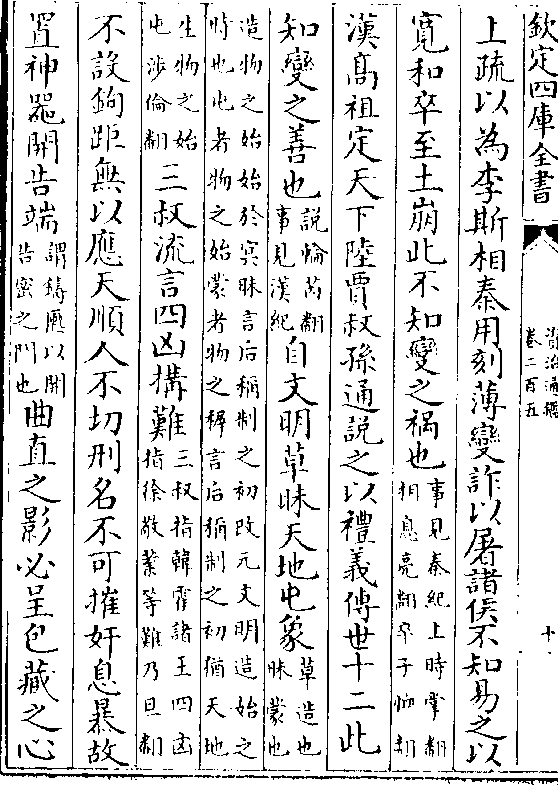 欽定四庫全書
資治通鑑
卷二百五
十
上疏以為李斯相秦用刻薄變詐以屠諸侯不知易之以
寛和卒至土崩此不知變之禍也事見秦紀上時掌翻相息亮翻卒子恤翻
漢髙祖定天下陸賈叔孫通説之以禮義傳世十二此
知變之善也説輸芮翻事見漢紀自文明草昧天地屯象草造也昧蒙也
造物之始始於冥昧言后稱制之初改元文明造始之
時也屯者物之始蒙者物之穉言后稱制之初猶天地
生物之始屯涉倫翻三叔流言四凶搆難三叔指韓霍諸王四凶指徐敬業等難乃旦翻
不設鉤距無以應天順人不切刑名不可摧奸息暴故
置神器開告端謂鑄匭以開告密之門也曲直之影必呈包藏之心